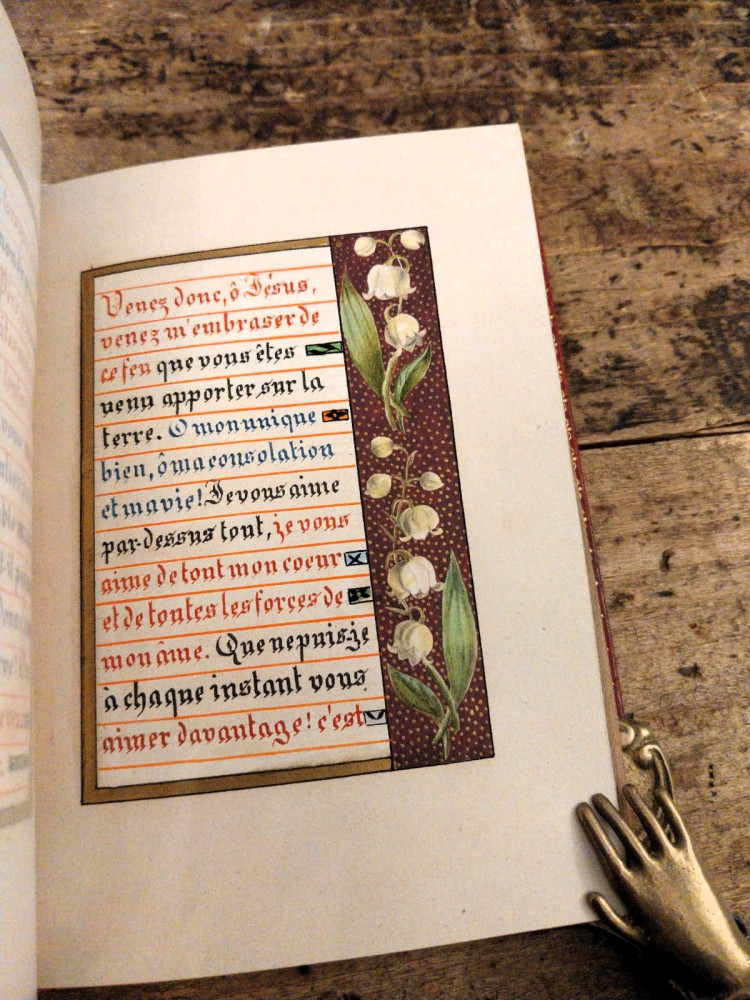 Venez donc, ô Jésus,
venez m'embraser de
ce feu que vous êtes
venu apporter sur la
terre. O mon unique
bien, ô ma consolation
et ma vie! Je vous aime
par-dessus tout, je vous
aime de tout mon coeur
et de toutes les forces de
mon âme. Que ne puis-je
à chaque instant vous
aimer davantage! c'est